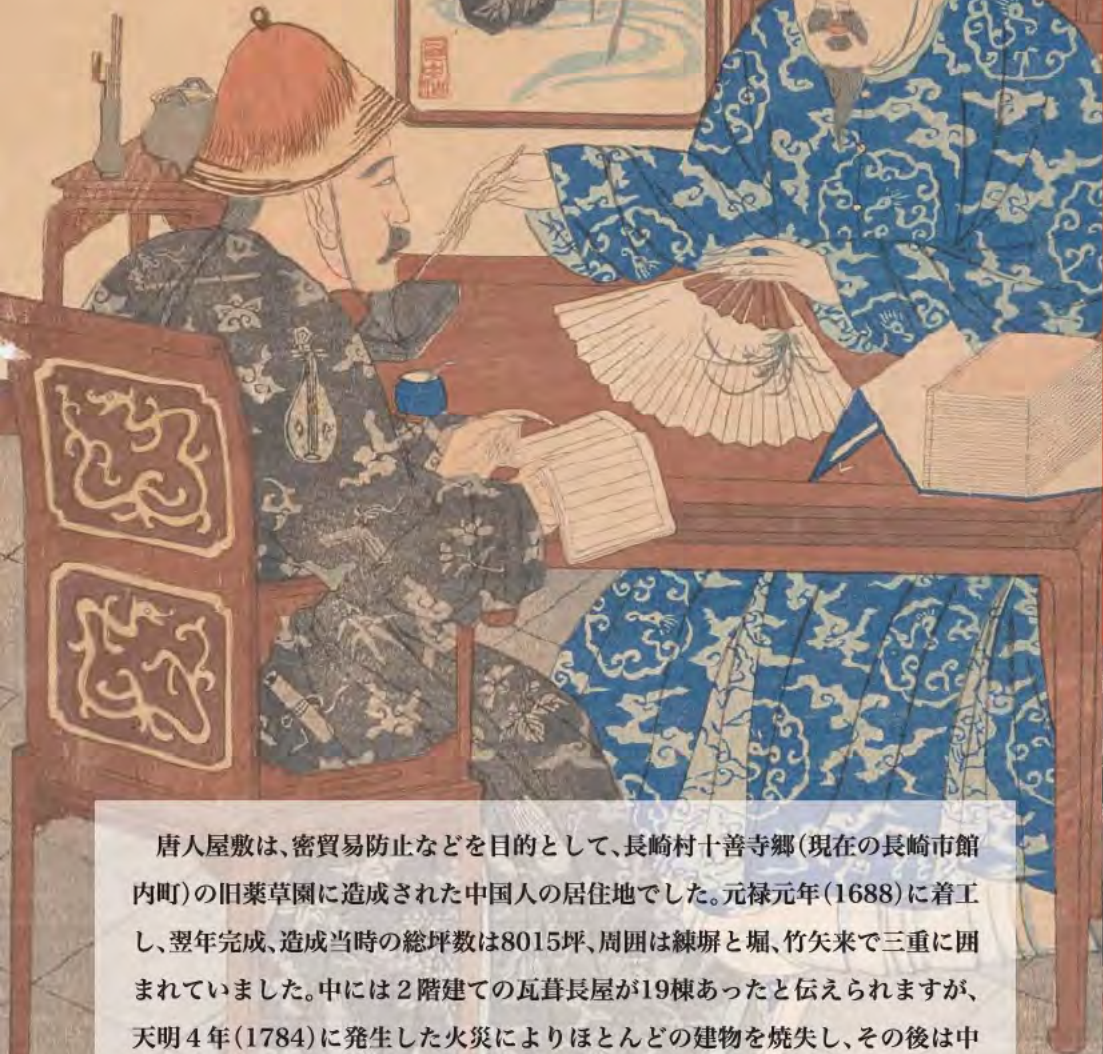 唐人屋敷は、密貿易防止などを目的として、長崎村十善寺郷(現在の長崎市館
内町)の旧薬草園に造成された中国人の居住地でした。元禄元年(1688)に着工
し、翌年完成、造成当時の総坪数は8015坪、周囲は練塀と堀、竹矢来で三重に囲
まれていました。中には２階建ての瓦葺長屋が19棟あったと伝えられますが、
天明４年(1784)に発生した火災によりほとんどの建物を焼失し、その後は中